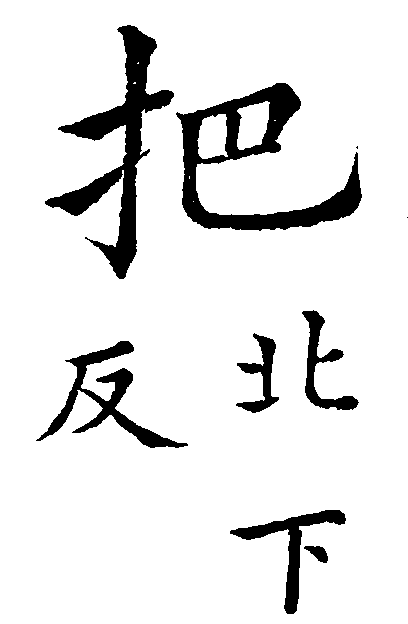 把
北下
反